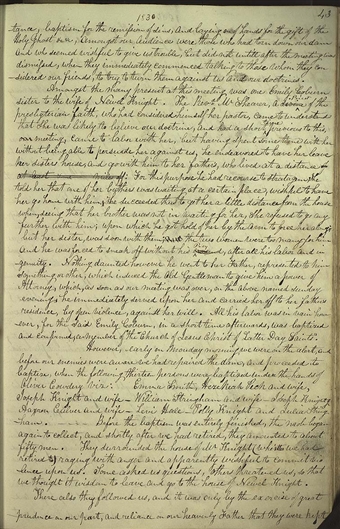 1830.
43
tance, baptism for the remission of sins, and laying on of hands for the gift of the
Holy Ghost &c. Amongst our audience were those who had torn down our dam
and who seemed wishful to give us trouble, but did not until after the meeting was
dismissed, when they immediately commenced talking to those whom they con-
sidered our friends, to try to turn them against us and our doctrines.
Amongst the many present at this meeting, was one Emily Coburn
sister to the wife of Newel Knight. The Revd. Mr Shearer, a Divine of the
presbyterian faith, who had considered himself her pastor, came to understand
that she was likely to believe our doctrine, and had a short time previous to this
our meeting, came to labor with her, but having spent some time with her
without being able to persuade her against us, he endeavored to have her leave
her sisters house, and go with him to her fathers, who lived at a distance of
at least miles off: For this purpose he had recourse to stratagem, he
told her that one of her brothers was waiting at a certain place, wishful to have
her go home with him; he succeeded thus to get her a little distance from the house
when, seeing that her brother was not in waiting for her, she refused to go any
further with him; upon which he got hold of her by the arm to force her along;
but her sister, was soon with them; the two women were too many for him
and he was forced to sneak off without his errand, after all his labor and in-
genuity. Nothing daunted however he went to her Father, represented to him
something or other, which induced the Old Gentleman to give him a power of
Attorney, which, as soon as our meeting was over, on the above named sunday
evening, he immediately served upon her and carried her off to her fathers
residence, by open violence, against her will. All his labor was in vain how-
ever, for the said Emily Coburn, in a short time afterwards, was baptized
and confirmed a member of the Church of Jesus Christ of Latter Day Saints.
However, early on Monday morning we were on the alert, and
before our enemies were aware we had repaired the dam, and proceeded to
baptize, when the following thirteen persons were baptized under the hands of
Oliver Cowdery Viz: Emma Smith, Hezekiah Peck and wife,
Joseph Knight and wife William Stringham and wife Joseph Knight Jr
Aaron Culver and wife Levi Hall Polly Knight and Julia String-
ham. Before the baptism was entirely finished, the mob began
again to collect, and shortly after we had retired, they amounted to about
fifty men. They surrounded the house of Mr Knight (whither we had
retired to) raging with anger and apparently wishful to commit vio-
lence upon us. Some asked us questions, others threatened us, so that
we thought it wisdom to leave and go to the house of Newel Knight.
There also they followed us, and it was only by the exercise of great
prudence on our part, and reliance in our heavenly Father that they were kept